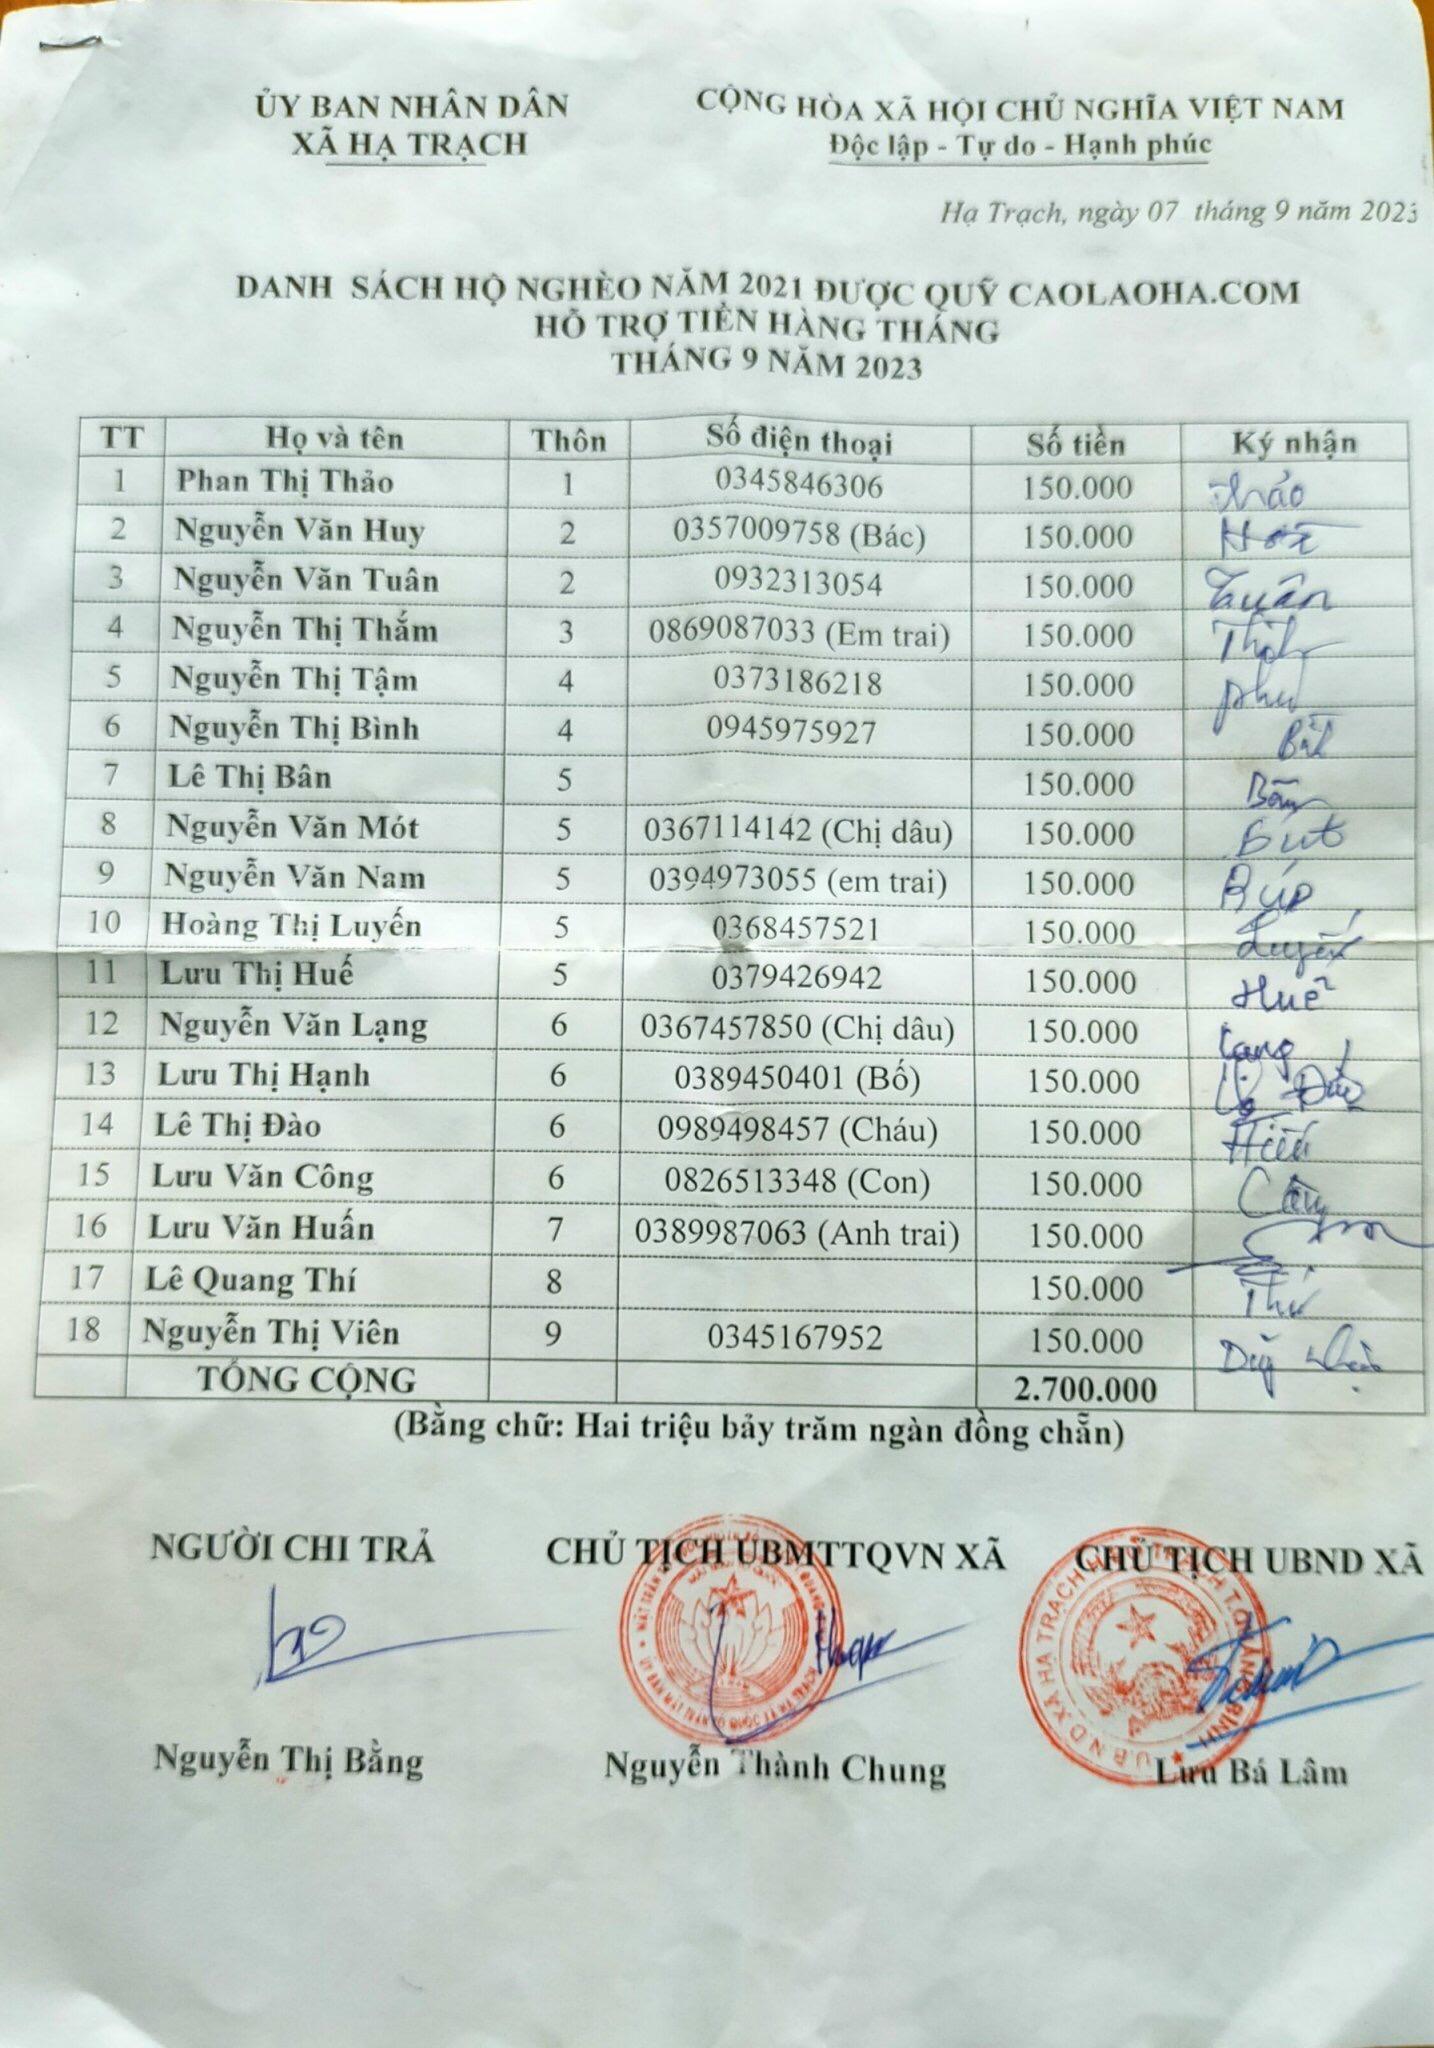 ỦY BAN NHÂN DÂN
XÃ HẠ TRẠCH
CỘNG HÒA XÃ HỘI CHỦ NGHĨA VIỆT NAM
Độc lập - Tự do - Hạnh phúc
Hạ Trạch, ngày 07 tháng 9 năm 2023
DANH SÁCH HỘ NGHÈO NĂM 2021 ĐƯỢC QUỸ CAOLAOHA.COM
HỖ TRỢ TIỀN HÀNG THÁNG
THÁNG 9 NĂM 2023
TT Họ và tên Thôn Số điện thoại Số tiền Ký nhận
1 Phan Thị Thảo 1 0345846306 150.000 Thảo
2 Nguyễn Văn Huy 2 0357009758 (Bác) 150.000
3 Nguyễn Văn Tuân 2 0932313054 150.000 Tuân
4 Nguyễn Thị Thắm 3 0869087033 (Em trai) 150.000
5 Nguyễn Thị Tậm 4 0373186218 150.000
6 Nguyễn Thị Bình 4 0945975927 150.000
7 Lê Thị Bân 5 150.000
8 Nguyễn Văn Mót 5 0367114142 (Chị dâu) 150.000
9 Nguyễn Văn Nam 5 0394973055 (em trai) 150.000 Búp
10 Hoàng Thị Luyến 5 0368457521 150.000 Luyến
11 Lưu Thị Huế 5 0379426942 150.000 Huế
12 Nguyễn Văn Lạng 6 0367457850 (Chị dâu) 150.000 Lạng
13 Lưu Thị Hạnh 6 0389450401 (Bố) 150.000
14 Lê Thị Đào 6 0989498457 (Cháu) 150.000
15 Lưu Văn Công 6 0826513348 (Con) 150.000
16 Lưu Văn Huấn 7 0389987063 (Anh trai) 150.000
17 Lê Quang Thí 8 150.000
18 Nguyễn Thị Viên 9 0345167952 150.000
TỔNG CỘNG 2.700.000
(Bằng chữ: Hai triệu bảy trăm ngàn đồng chẵn)
NGƯỜI CHI TRẢ
CHỦ TỊCH UBMTTQVN XÃ
CHỦ TỊCH UBND XÃ
Nguyễn Thị Bằng
Nguyễn Thành Chung
Lưu Bá Lâm